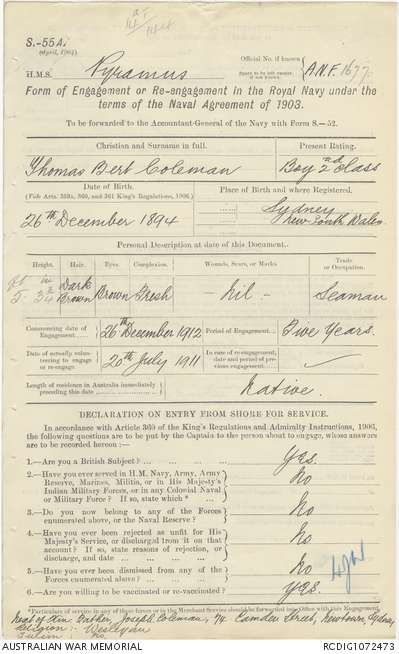 S.-55A.
(April, 1904)
H.M.S. Pyramus
Official No. if known A.N.F. 1677.
Form of Engagement or Re-engagement in the Royal Navy under the
terms of the Naval Agreement of 1903.
To be forwarded to the Accountant-General of the Navy with Form S.—52.
Christian and Surname in full. Present Rating.
Thomas Bert Coleman Boy 2nd Class
Date of Birth. Place of Birth and where Registered.
(Vide Arts. 359a, 360, and 361 King's Regulations, 1906.)
26th December 1894 Sydney
New South Wales
Personal Description at date of this Document.
Height. Hair. Eyes. Complexion. Wounds, Scars, or Marks Trade
or Occupation.
ft in
5. 3¾ Dark Brown Brown Fresh - Nil - Seaman
Commencing date of
Engagement 26th December 1912 Period of Engagement Five Years.
Date of actually volun-
teering to engage
or re-engage 20th July 1911 In case of re-engagement,
date and period of pre-
vious engagement
Length of residence in Australia immediately
preceding this date Native.
DECLARATION ON ENTRY FROM SHORE FOR SERVICE.
In accordance with Article 360 of the King's Regulations and Admiralty Instructions, 1906,
the following questions are to be put by the Captain to the person about to engage, whose answers
are to be recorded hereon:—
1.—Are you a British Subject? Yes.
2.—Have you ever served in H.M. Navy, Army, Army
Reserve, Marines, Militia, or in His Majesty's
Indian Military Forces, or in any Colonial Naval
or Military Force? If so, state which * No
3.—Do you now belong to any of the Forces
enumerated above, or the Naval Reserve? No
4.—Have you ever been rejected as unfit for His
Majesty's Service, or discharged from it on that
account? If so, state reasons of rejection, or
discharge, and date No
5.—Have you ever been dismissed from any of the
Forces enumerated above? No
6.—Are you willing to be vaccinated or re-vaccinated? Yes.
*Particulars of service in any of these forces or in the Merchant Service should be forwarded on this Engagement.
Next of Kin: Father, Joseph Coleman, 74 Camden Street, Newtown, Sydney
Religion:- Wesleyan
AUSTRALIAN WAR MEMORIAL RCDIG1072473